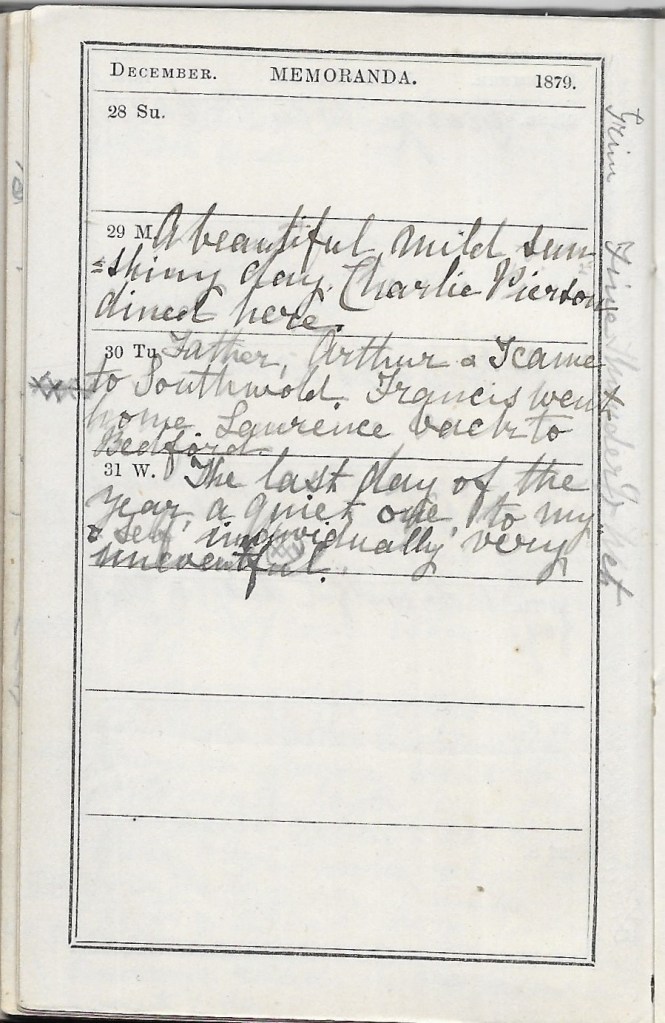 DECEMBER. MEMORANDA. 1879.
28 Su.
29 M. A beautiful mild sun
=shiny day. Charlie Pierson
dined here.
30 Tu. Father, Arthur & I came
to Southwold. Francis went
home Laurence back to
Bedford.
31 W. The last day of the
year, a quiet one, to my
self, individually very
uneventful.
Fine Thunder & wet